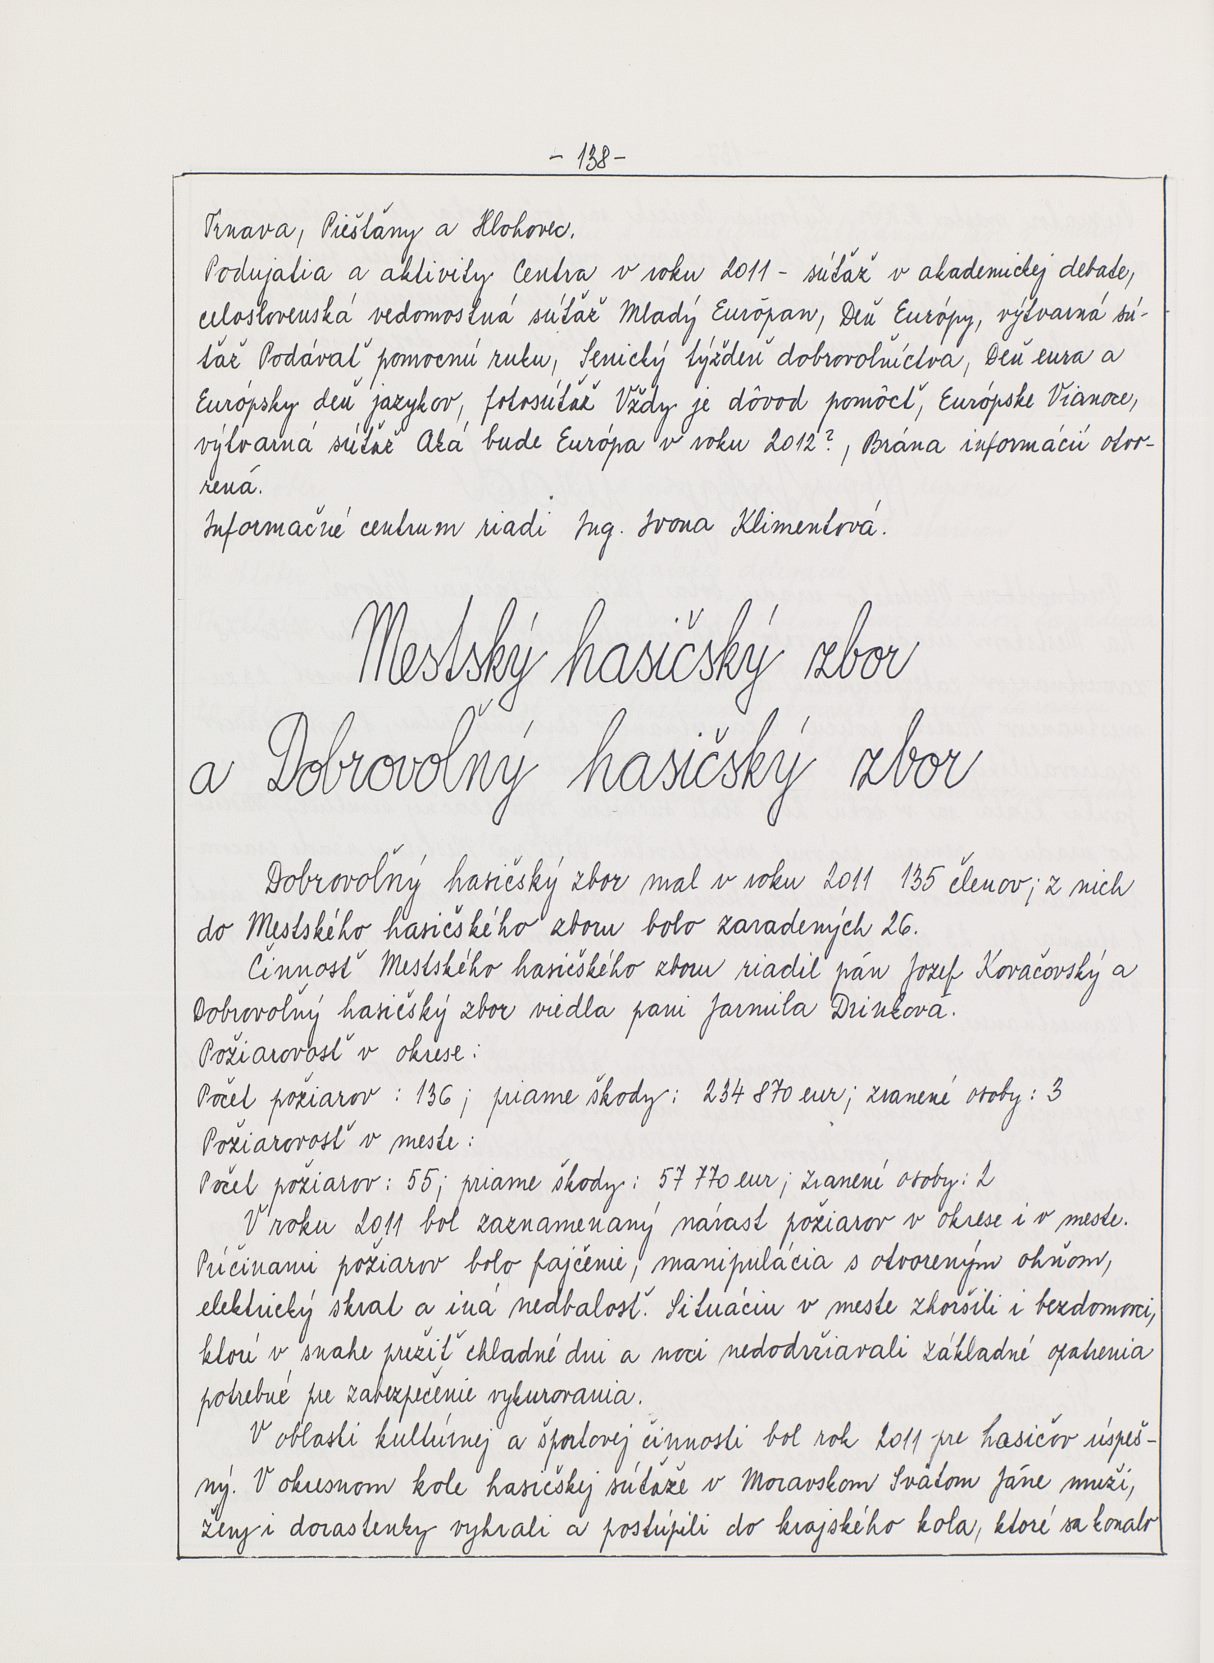 - 138 -
Trnava, Piešťany a Hlohovec.
Podujatia a aktivity Centra v roku 2011 - súťaž v akademickej debate,
celoslovenská vedomostná súťaž Mladý Európan, Deň Európy, výtvarná sú-
ťaž Podávať pomocnú ruku, Senický týždeň dobrovoľníctva, Deň eura a
Európsky deň jazykov, fotosúťaž Vždy je dôvod pomôcť, Európske Vianoce,
výtvarná súťaž Aká bude Európa v roku 2012?, Brána informácií otvo-
rená.
Informačné centrum riadi Ing. Ivona Klimentová.
Mestský hasičský zbor
a Dobrovoľný hasičský zbor
Dobrovoľný hasičský zbor mal v roku 2011 135 členov; z nich
do Mestského hasičského zboru bolo zaradených 26.
Činnosť Mestského hasičského zboru riadil pán Jozef Kovačovský a
Dobrovoľný hasičský zbor viedla pani Jarmila Drinková.
Požiarovosť v okrese:
Počet požiarov : 136; priame škody: 234 870 eur; zranené osoby: 3
Požiarovosť v meste:
Počet požiarov: 55; priame škody: 57 770 eur; zranené osoby: 2
V roku 2011 bol zaznamenaný nárast požiarov v okrese i v meste.
Príčinami požiarov bolo fajčenie, manipulácia s otvoreným ohňom,
elektrický skrat a iná nedbalosť. Situáciu v meste zhoršili i bezdomovci,
ktoré v snahe prežiť chladné dni a noci nedodržiavali základné opatrenia
potrebné pre zabezpečenie vykurovania.
V oblasti kultúrnej a športovej činnosti bol rok 2011 pre hasičov úspeš-
ný. V okresnom kole hasičskej súťaže v Moravskom Svätom Jáne muži,
ženy i dorastenky vyhrali a postúpili do krajského kola, ktoré sa konalo